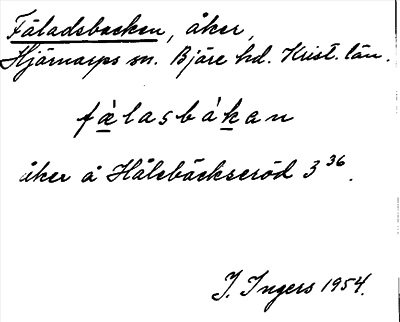 Fäladsbacken, åker,
Hjärnarps sn. Bjäre hd. Krist. län.
fæ̀lasbákan
åker å Hålebäckseröd 3 36.
I. Ingers 1954.